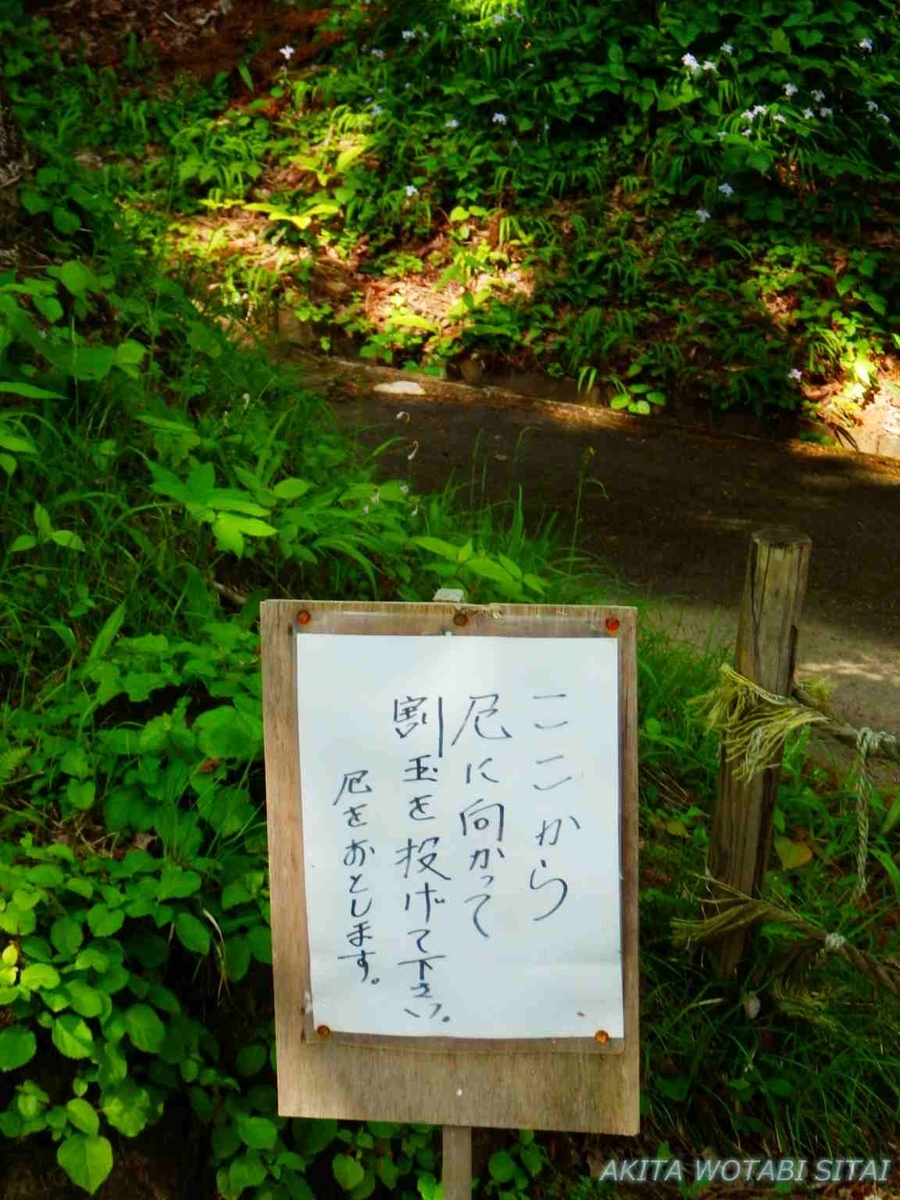 ここから
厄に向かって
割玉を投げて下さい。
厄をおとします。
AKITA WOTABI SITAI